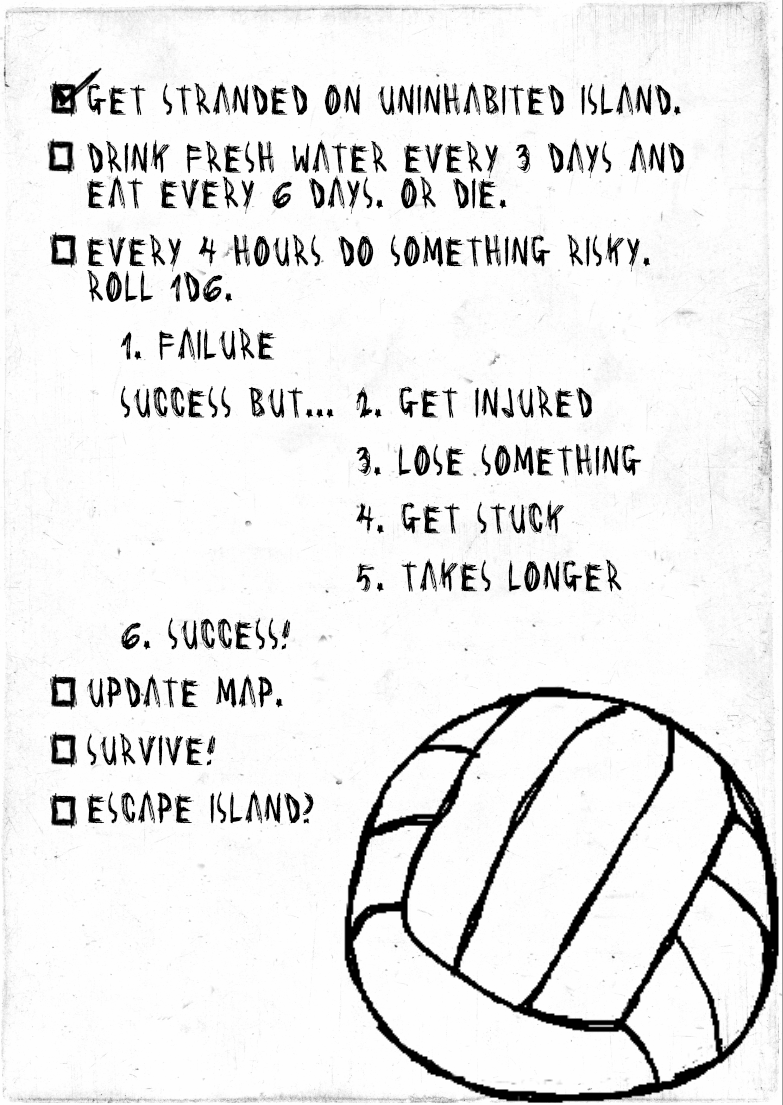 GET STRANDED ON UNINHABITED ISLAND.
DRINK FRESH WATER EVERY 3 DAYS AND
EAT EVERY 6 DAYS. OR DIE.
EVERY 4 HOURS DO SOMETHING RISKY.
ROLL 1D6.
1. FAILURE
SUCCESS BUT... 2. GET INJURED
3. LOSE SOMETHING
4. GET STUCK
5. TAKES LONGER
6. SUCCESS!
UPDATE MAP.
SURVIVE!
ESCAPE ISLAND?